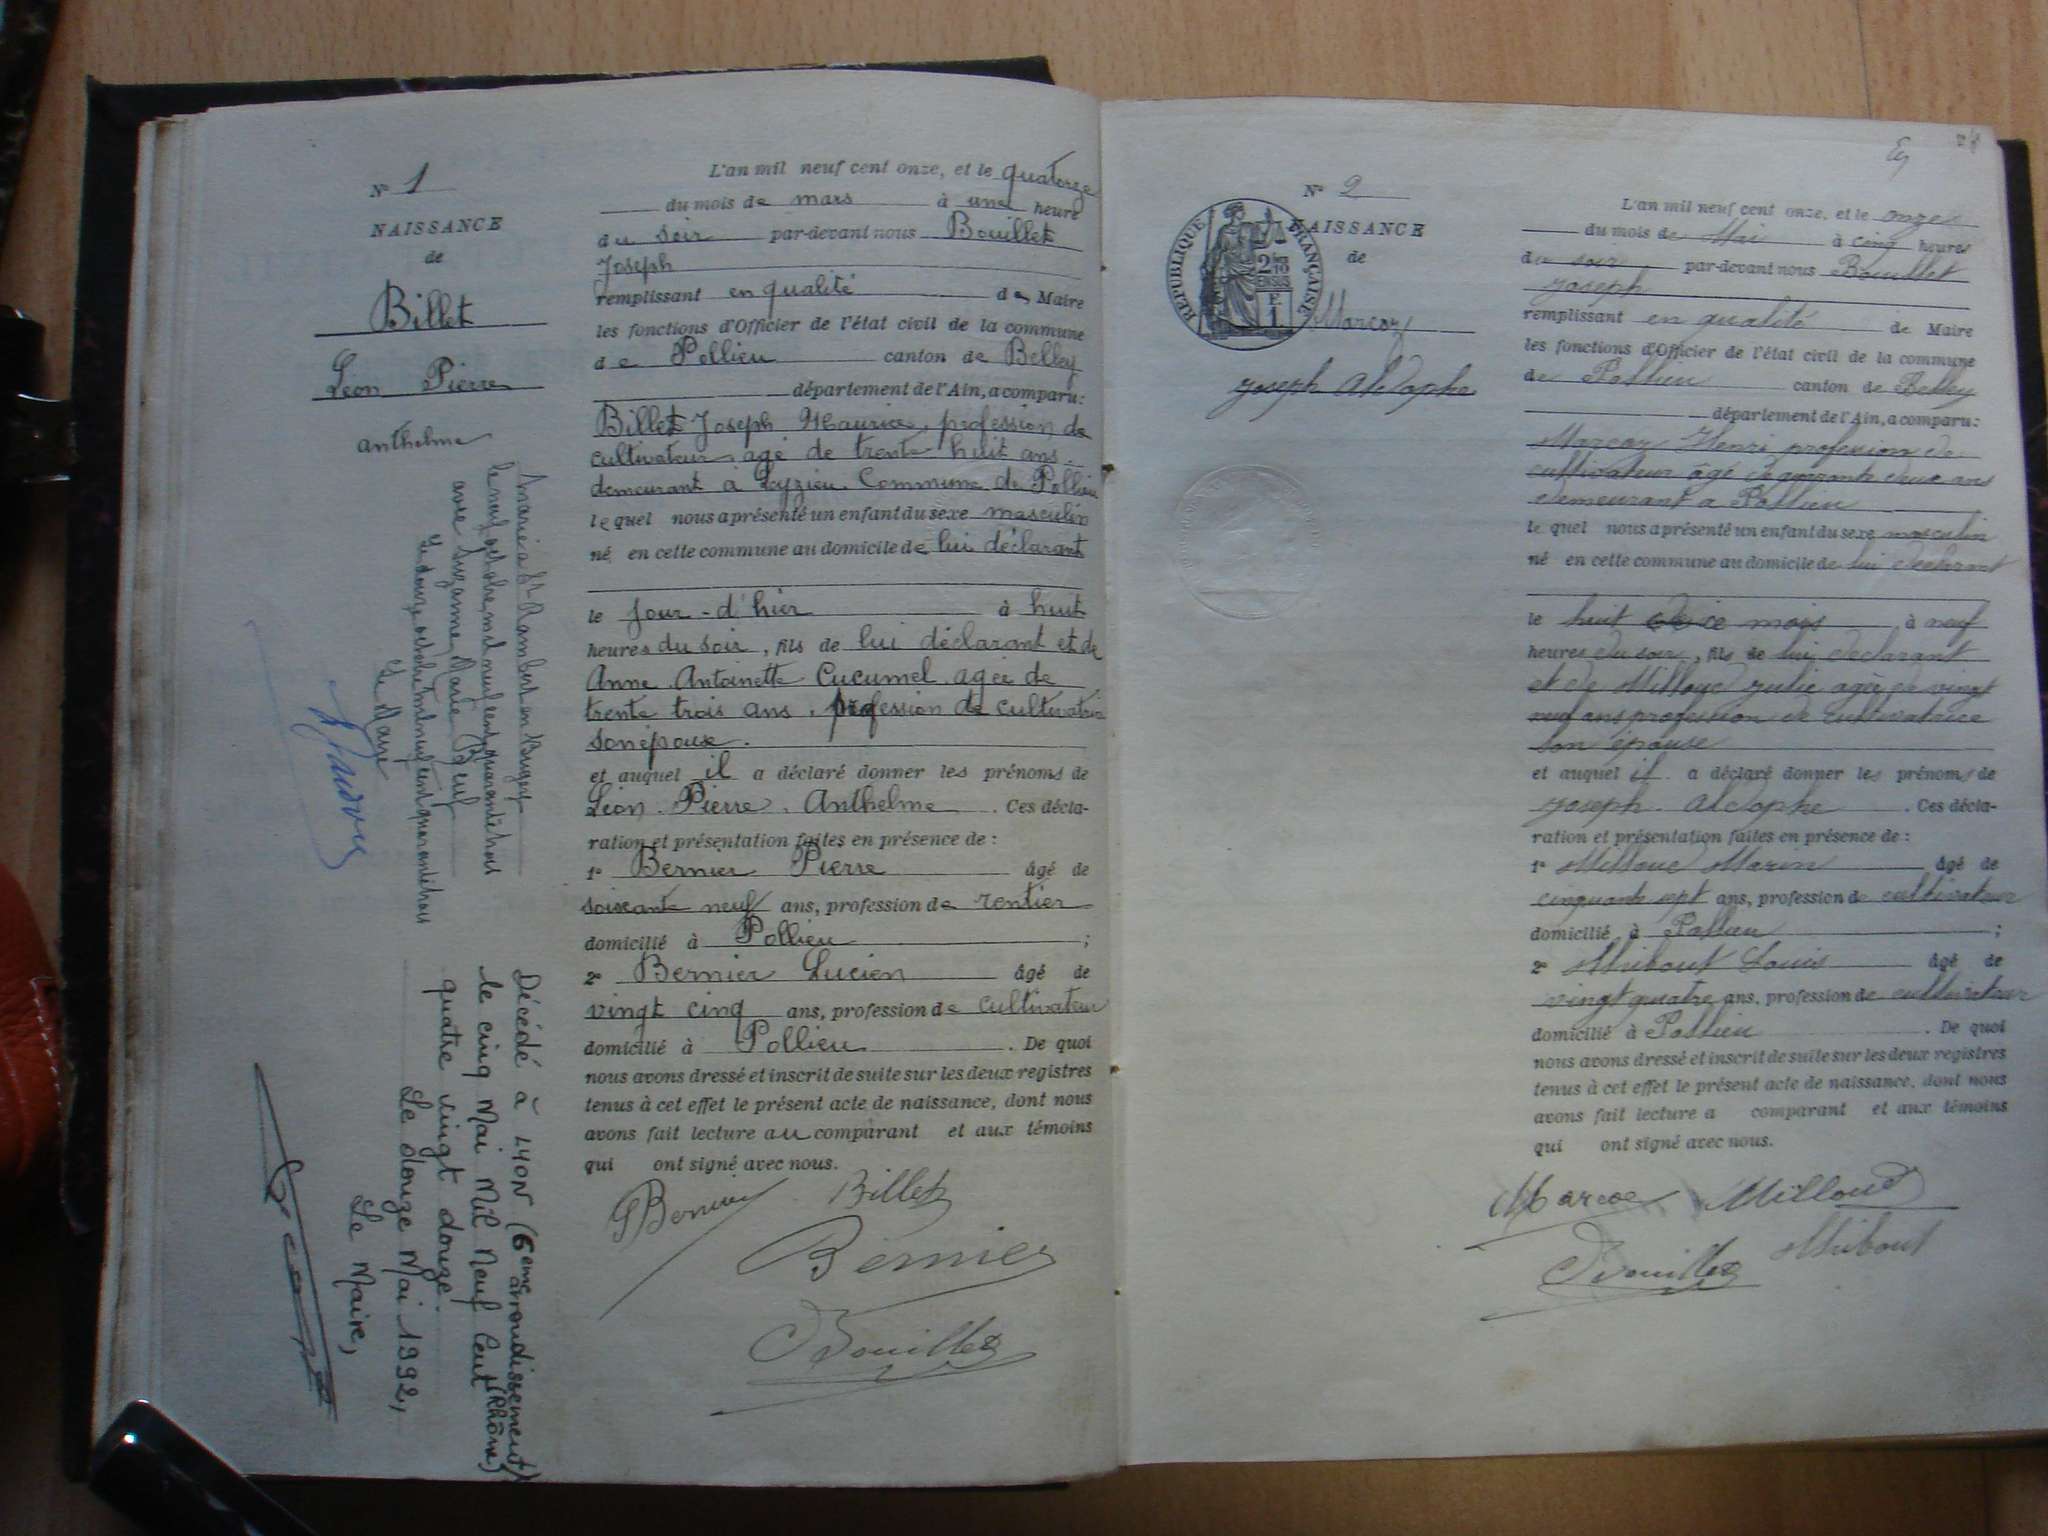 N° 1
NAISSANCE
de
Billet
Léon Pierre
anthelme
Marié à St Rambert en Bugey
le neuf octobre mil neuf cent quarante trois
avec Suzanne Marie Beuf
Le douze octobre mil neuf cent quarante trois
Le Maire
Décédé à LYON (6eme arrondissement)
(Rhône)
le cinq Mai Mil Neuf Cent
quatre vingt douze.
Le douze Mai 1992,
Le Maire,
L'an mil neuf cent onze, et le quatorze
du mois de mars à une heure
du soir par-devant nous Bouillet
Joseph
remplissant en qualité de Maire
les fonctions d'Officier de l'état civil de la commune
de Pollieu canton de Belley
département de l'Ain, a comparu:
Billet Joseph Maurice, profession de
cultivateur agé de trente huit ans.
demeurant à Leyzieu. Commune de Pollieu
le quel nous a présenté un enfant du sexe masculin
né en cette commune au domicile de lui déclarant
le jour-d'hier à huit
heures du soir, fils de lui déclarant et de
Anne Antoinette Cucumel agée de
trente trois ans. profession de cultivatrice
son épouse.
et auquel il a déclaré donner les prénoms de
Léon. Pierre. Anthelme. Ces décla-
ration et présentation faites en présence de :
1° Bernier Pierre âgé de
soixante neuf ans, profession de rentier
domicilié à Pollieu ;
2° Bernier Lucien âgé de
vingt cinq ans, profession de cultivateur
domicilié à Pollieu. De quoi
nous avons dressé et inscrit de suite sur les deux registres
tenus à cet effet le présent acte de naissance, dont nous
avons fait lecture au comparant et aux témoins
qui ont signé avec nous.
PBernier Billet
Bernier
JBouillet
N° 2
NAISSANCE
de
RÉPUBLIQUE FRANÇAISE
2/10 EN SUS
F.
1
Marcoz
Joseph Aldophe
L'an mil neuf cent onze, et le onze
du mois de Mai à cinq heures
du soir par-devant nous Bouillet
Joseph
remplissant en qualité de Maire
les fonctions d'Officier de l'état civil de la commune
de Pollieu canton de Belley
département de l'Ain, a comparu:
Marcoz Henri profession de
cultivateur âgé de quarante deux ans
demeurant a Pollieu
le quel nous a présenté un enfant du sexe masculin
né en cette commune au domicile de lui déclarant
le huit de ce mois à neuf
heures du soir, fils de lui déclarant
et de Milloud Julie agée de vingt
neuf ans profession de cultivatrice
son épouse
et auquel il a déclaré donner les prénoms de
Joseph Aldophe. Ces décla-
ration et présentation faites en présence de :
1° Milloud Marin âgé de
cinquante sept ans, profession de cultivateur
domicilié à Pollieu ;
2° Thibout Louis âgé de
vingt quatre ans, profession de cultivateur
domicilié à Pollieu. De quoi
nous avons dressé et inscrit de suite sur les deux registres
tenus à cet effet le présent acte de naissance, dont nous
avons fait lecture a comparant et aux témoins
qui ont signé avec nous.
Marcoz Milloud
JBouillet Thibout